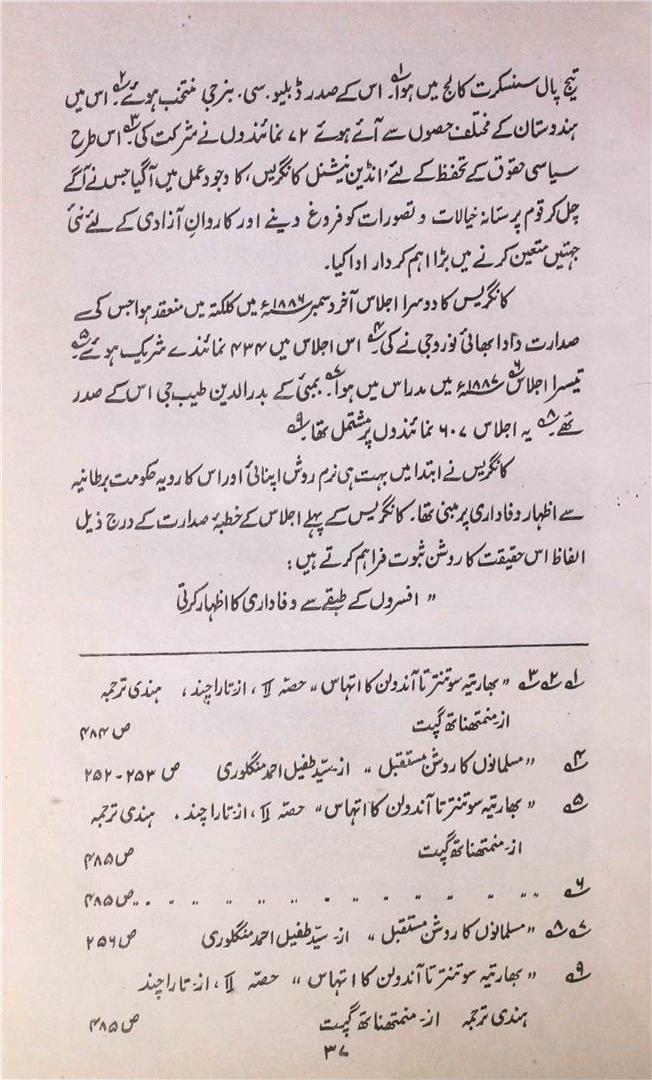 تیج پال سنسکرت کالج میں ہوا۔۱؎ اس کے صدر ڈبلیو۔ سی۔ بنرجی منتخب ہوئے۔۲؎ اس میں
ہندوستان کے مختلف حصوں سے آئے ہوئے ۷۲ نمائندوں نے شرکت کی۔۳؎ اس طرح
سیاسی حقوق کے تحفظ کے لئے ’انڈین نیشنل کانگریس‘ کا وجود عمل میں آگیا جس نے آگے
چل کر قوم پرستانہ خیالات و تصورات کو فروغ دینے اور کاروانِ آزادی کے لئے نئی
جہتیں متعین کرنے میں بڑا اہم کردار ادا کیا۔
کانگریس کا دوسرا اجلاس آخر دسمبر ۱۸۸۶ء میں کلکتہ میں منعقد ہوا جس کی
صدارت دادا بھائی نوروجی نے کی۔۴؎ اس اجلاس میں ۴۳۴ نمائندے شریک ہوئے۔۵؎
تیسرا اجلاس۶؎ ۱۸۸۷ء میں مدراس میں ہوا۔۷؎ بمبئی کے بدرالدین طیب جی اس کے صدر
تھے۔۸؎ یہ اجلاس ۶۰۷ نمائندوں پر مشتمل تھا۔۹؎
کانگریس نے ابتدا میں بہت ہی نرم روش اپنائی اور اس کا رویہ حکومت برطانیہ
سے اظہار وفاداری پر مبنی تھا۔ کانگریس کے پہلے اجلاس کے خطبۂ صدارت کے درج ذیل
الفاظ اس حقیقت کا روشن ثبوت فراہم کرتے ہیں :
" افسروں کے طبقے سے وفاداری کا اظہار کرتی
۱؎ ۲؎ ۳؎ " بھارتیہ سوتنترتا آندولن کا اتہاس " حصہ II ، از تارا چند ، ہندی ترجمہ
از۔ منمتھناتھ گپت ص ۴۸۴
۴؎ " مسلمانوں کا روشن مستقبل " از۔ سیّد طفیل احمد منگلوری ص ۲۵۳-۲۵۲
۵؎ " بھارتیہ سوتنترتا آندولن کا اتہاس " حصہ II ، از تارا چند ، ہندی ترجمہ
از۔ منمتھناتھ گپت ص ۴۸۵
۶؎ " " " " " " " " " " " ص ۴۸۵
۷؎ ۸؎ " مسلمانوں کا روشن مستقبل " از۔ سیّد طفیل احمد منگلوری ص ۲۵۶
۹؎ " بھارتیہ سوتنترتا آندولن کا اتہاس " حصہ II ، از۔ تارا چند
ہندی ترجمہ از۔ منمتھناتھ گپت ص ۴۸۵
۳۷